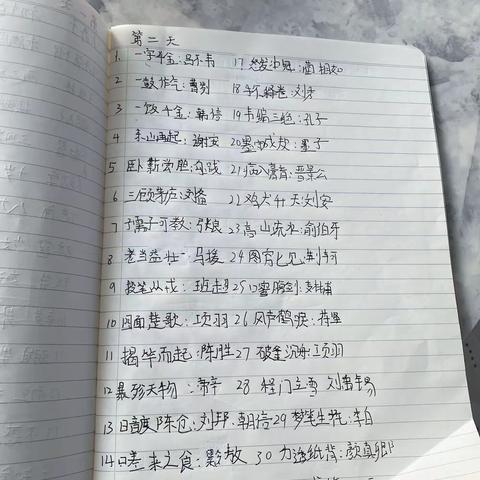 第二天
1. 一字千金:吕不韦 17 怒发冲冠:蔺相如
2 一鼓作气:曹刿 18 手不释卷:刘秀
3 一饭千金:韩信 19 韦编三绝:孔子
4 东山再起:谢安 20 墨守成规:墨子
5 卧薪尝胆:勾践 21 病入膏肓:晋景公
6 三顾茅庐:刘备 22 鸡犬升天:刘安
7 孺子可教:张良 23 高山流水:俞伯牙
8 老当益壮:马援 24 图穷匕见:荆轲
9 投笔从戎:班超 25 口蜜腹剑:李林甫
10 四面楚歌:项羽 26 风声鹤唳:苻坚
11 揭竿而起:陈胜 27 破釜沉舟:项羽
12 暴殄天物: 28 程门立雪 刘禹锡
13 暗度陈仓:刘邦.韩信 29 梦笔生花:李白
14 嗟来之食:黔敖 30 力透纸背:颜真卿